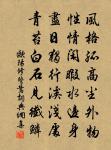 風格孤高塵外物
性情閒暇水邊身
盡日獨行溪淺處
青苔白石見纖鱗
歐陽修鷺鷥詞典網書